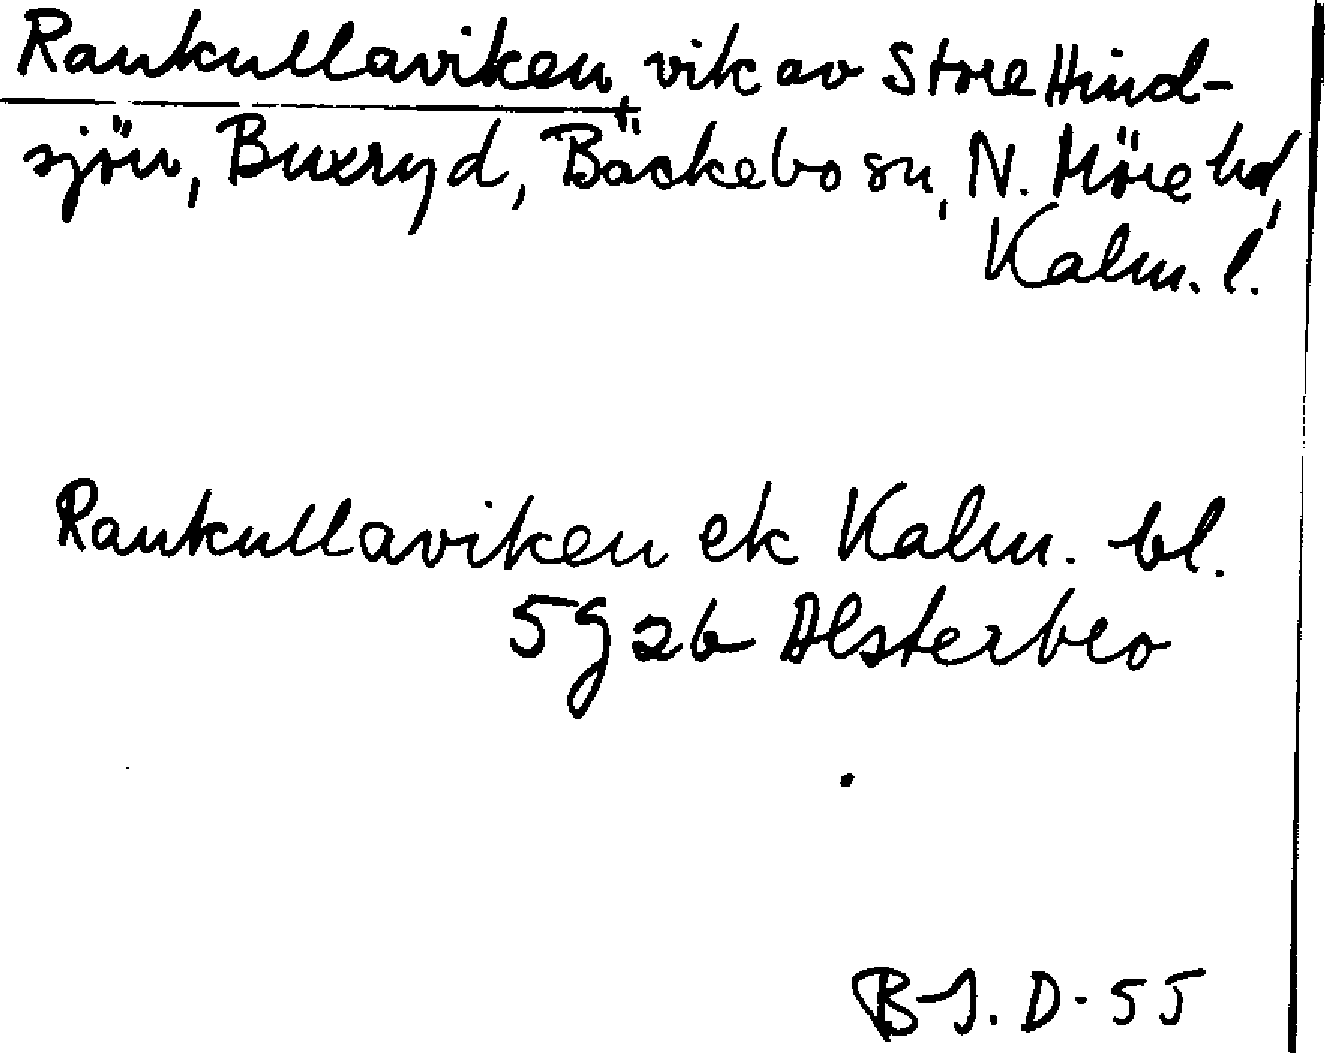 Rankullaviken, vik av Store Hind-
sjön, Buxryd, Bäckebo sn, N. Möre hd,
Kalm. l.
Rankullaviken ek Kalm. bl.
5g2b Alsterbro
B-J. D-55